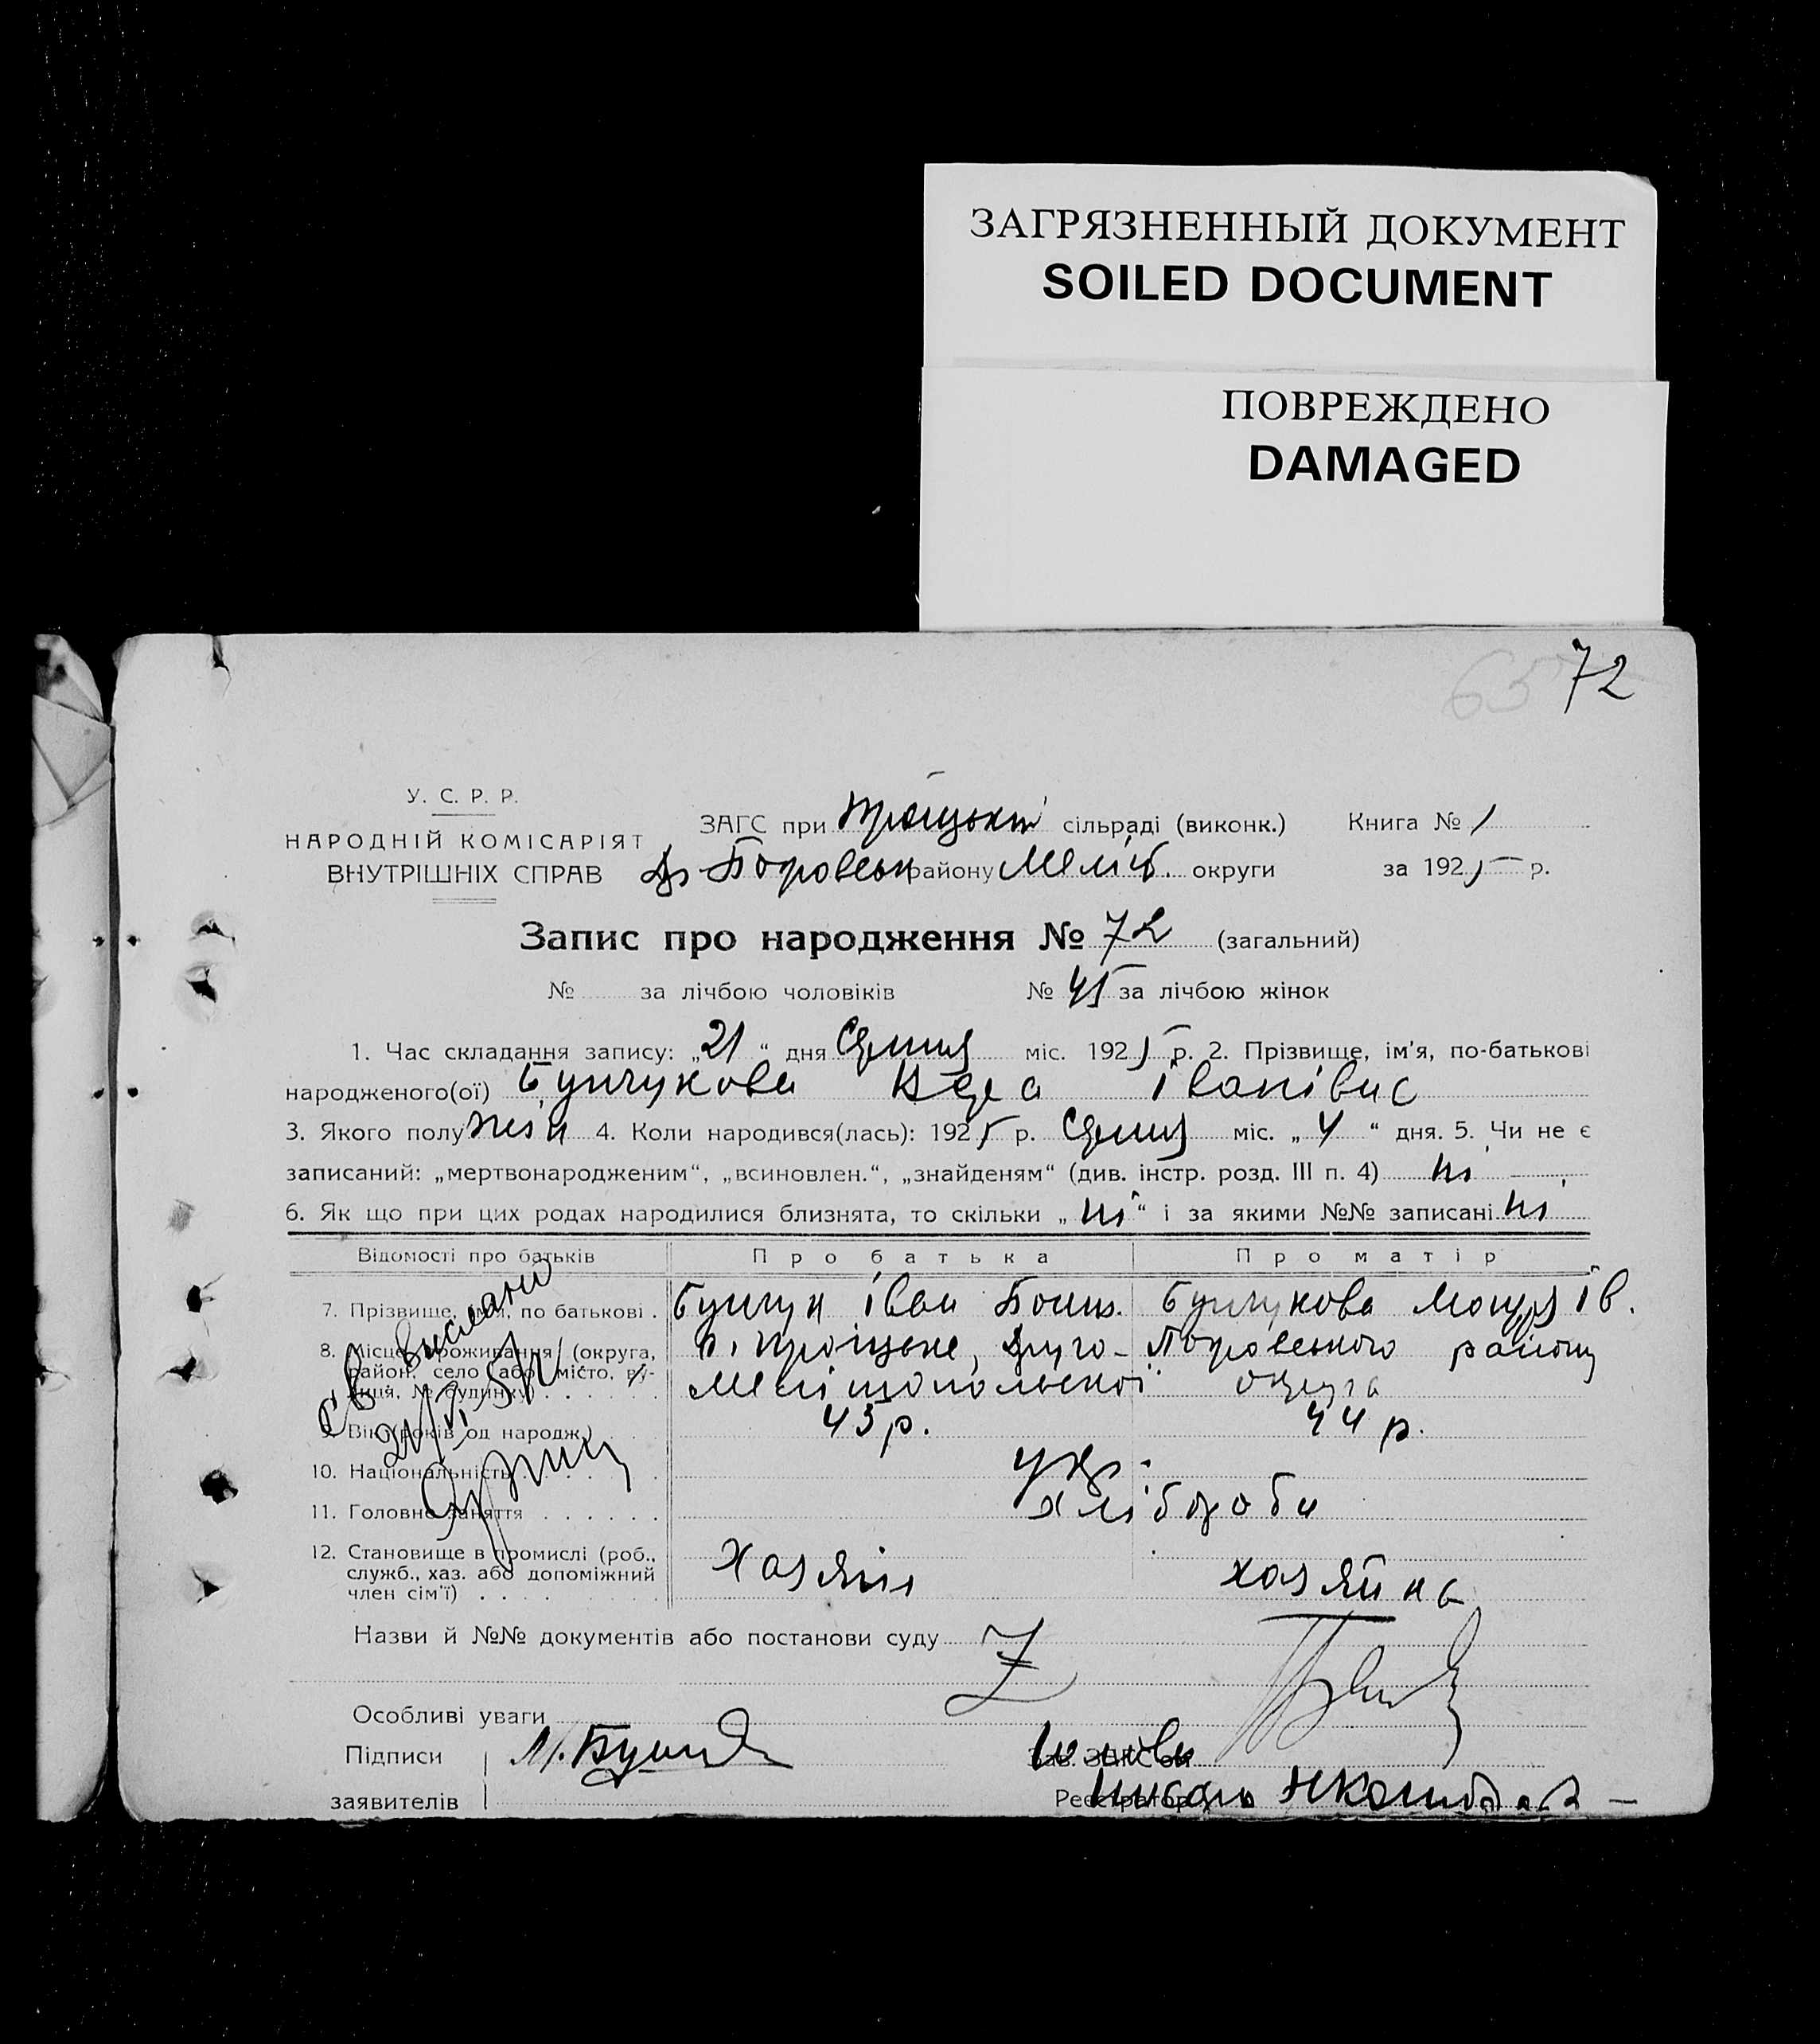 ЗАГРЯЗНЕННЫЙ ДОКУМЕНТ
SOILED DOCUMENT
ПОВРЕЖДЕНО
DAMAGED
65 72
У. С. Р. Р.
НАРОДНІЙ КОМІСАРІЯТ
ВНУТРІШНІХ СПРАВ
ЗАГС при сільраді (виконк.) Книга № 1
району Меліт. округи за 1925 р.
Запис про народження № 72 (загальний)
№ за лічбою чоловіків № 45 за лічбою жінок
1. Час складання запису: „21“ дня Серпня міс. 1925 р. 2. Прізвище, ім'я, по-батькові
народженого(ої) Бунчукова Іванівна
3. Якого полу жін 4. Коли народився(лась): 1925 р. Серпня міс. „4“ дня. 5. Чи не є
записаний: „мертвонародженим“, „всиновлен.“, „знайденям“ (див. інстр. розд. III п. 4) ні
6. Як що при цих родах народилися близнята, то скільки „ні“ і за якими №№ записані ні
Відомості про батьків Про батька Про матір
7. Прізвище, ім'я, по батькові . Бунчук Іван Бунчукова Ів.
8. Місце проживання (округа, район, село або місто, ву-
лиця, № будинку) . . . . . .
Покровського району
Мелітопольської округа
9. Вік (років од народж.) 43 р. 44 р.
10. Національність . . . . . . укр.
11. Головне заняття . . . . . . хлібороби
12. Становище в промислі (роб.,
служб., хаз. або допоміжний
член сім'ї) . . . .
Хазяїн хазяйка
Св вислано
Назви й №№ документів або постанови суду
Особливі уваги
Підписи М.
Зав. ЗАГС'ом
заявителів
Реєстратор